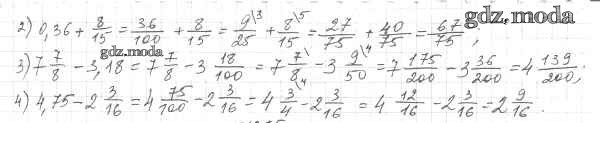 2) 0,36 + 8/15 = 36/100 + 8/15 = 9/25 \3 + 8/15 \5 = 27/75 + 40/75 = 67/75 ;
gdz.moda
gdz.moda
3) 7 7/8 - 3,18 = 7 7/8 - 3 18/100 = 7 7/8 - 3 9/50 \4 = 7 175/200 - 3 36/200 = 4 139/200 ;
4) 4,75 - 2 3/16 = 4 75/100 - 2 3/16 = 4 3/4 \4 - 2 3/16 = 4 12/16 - 2 3/16 = 2 9/16 .